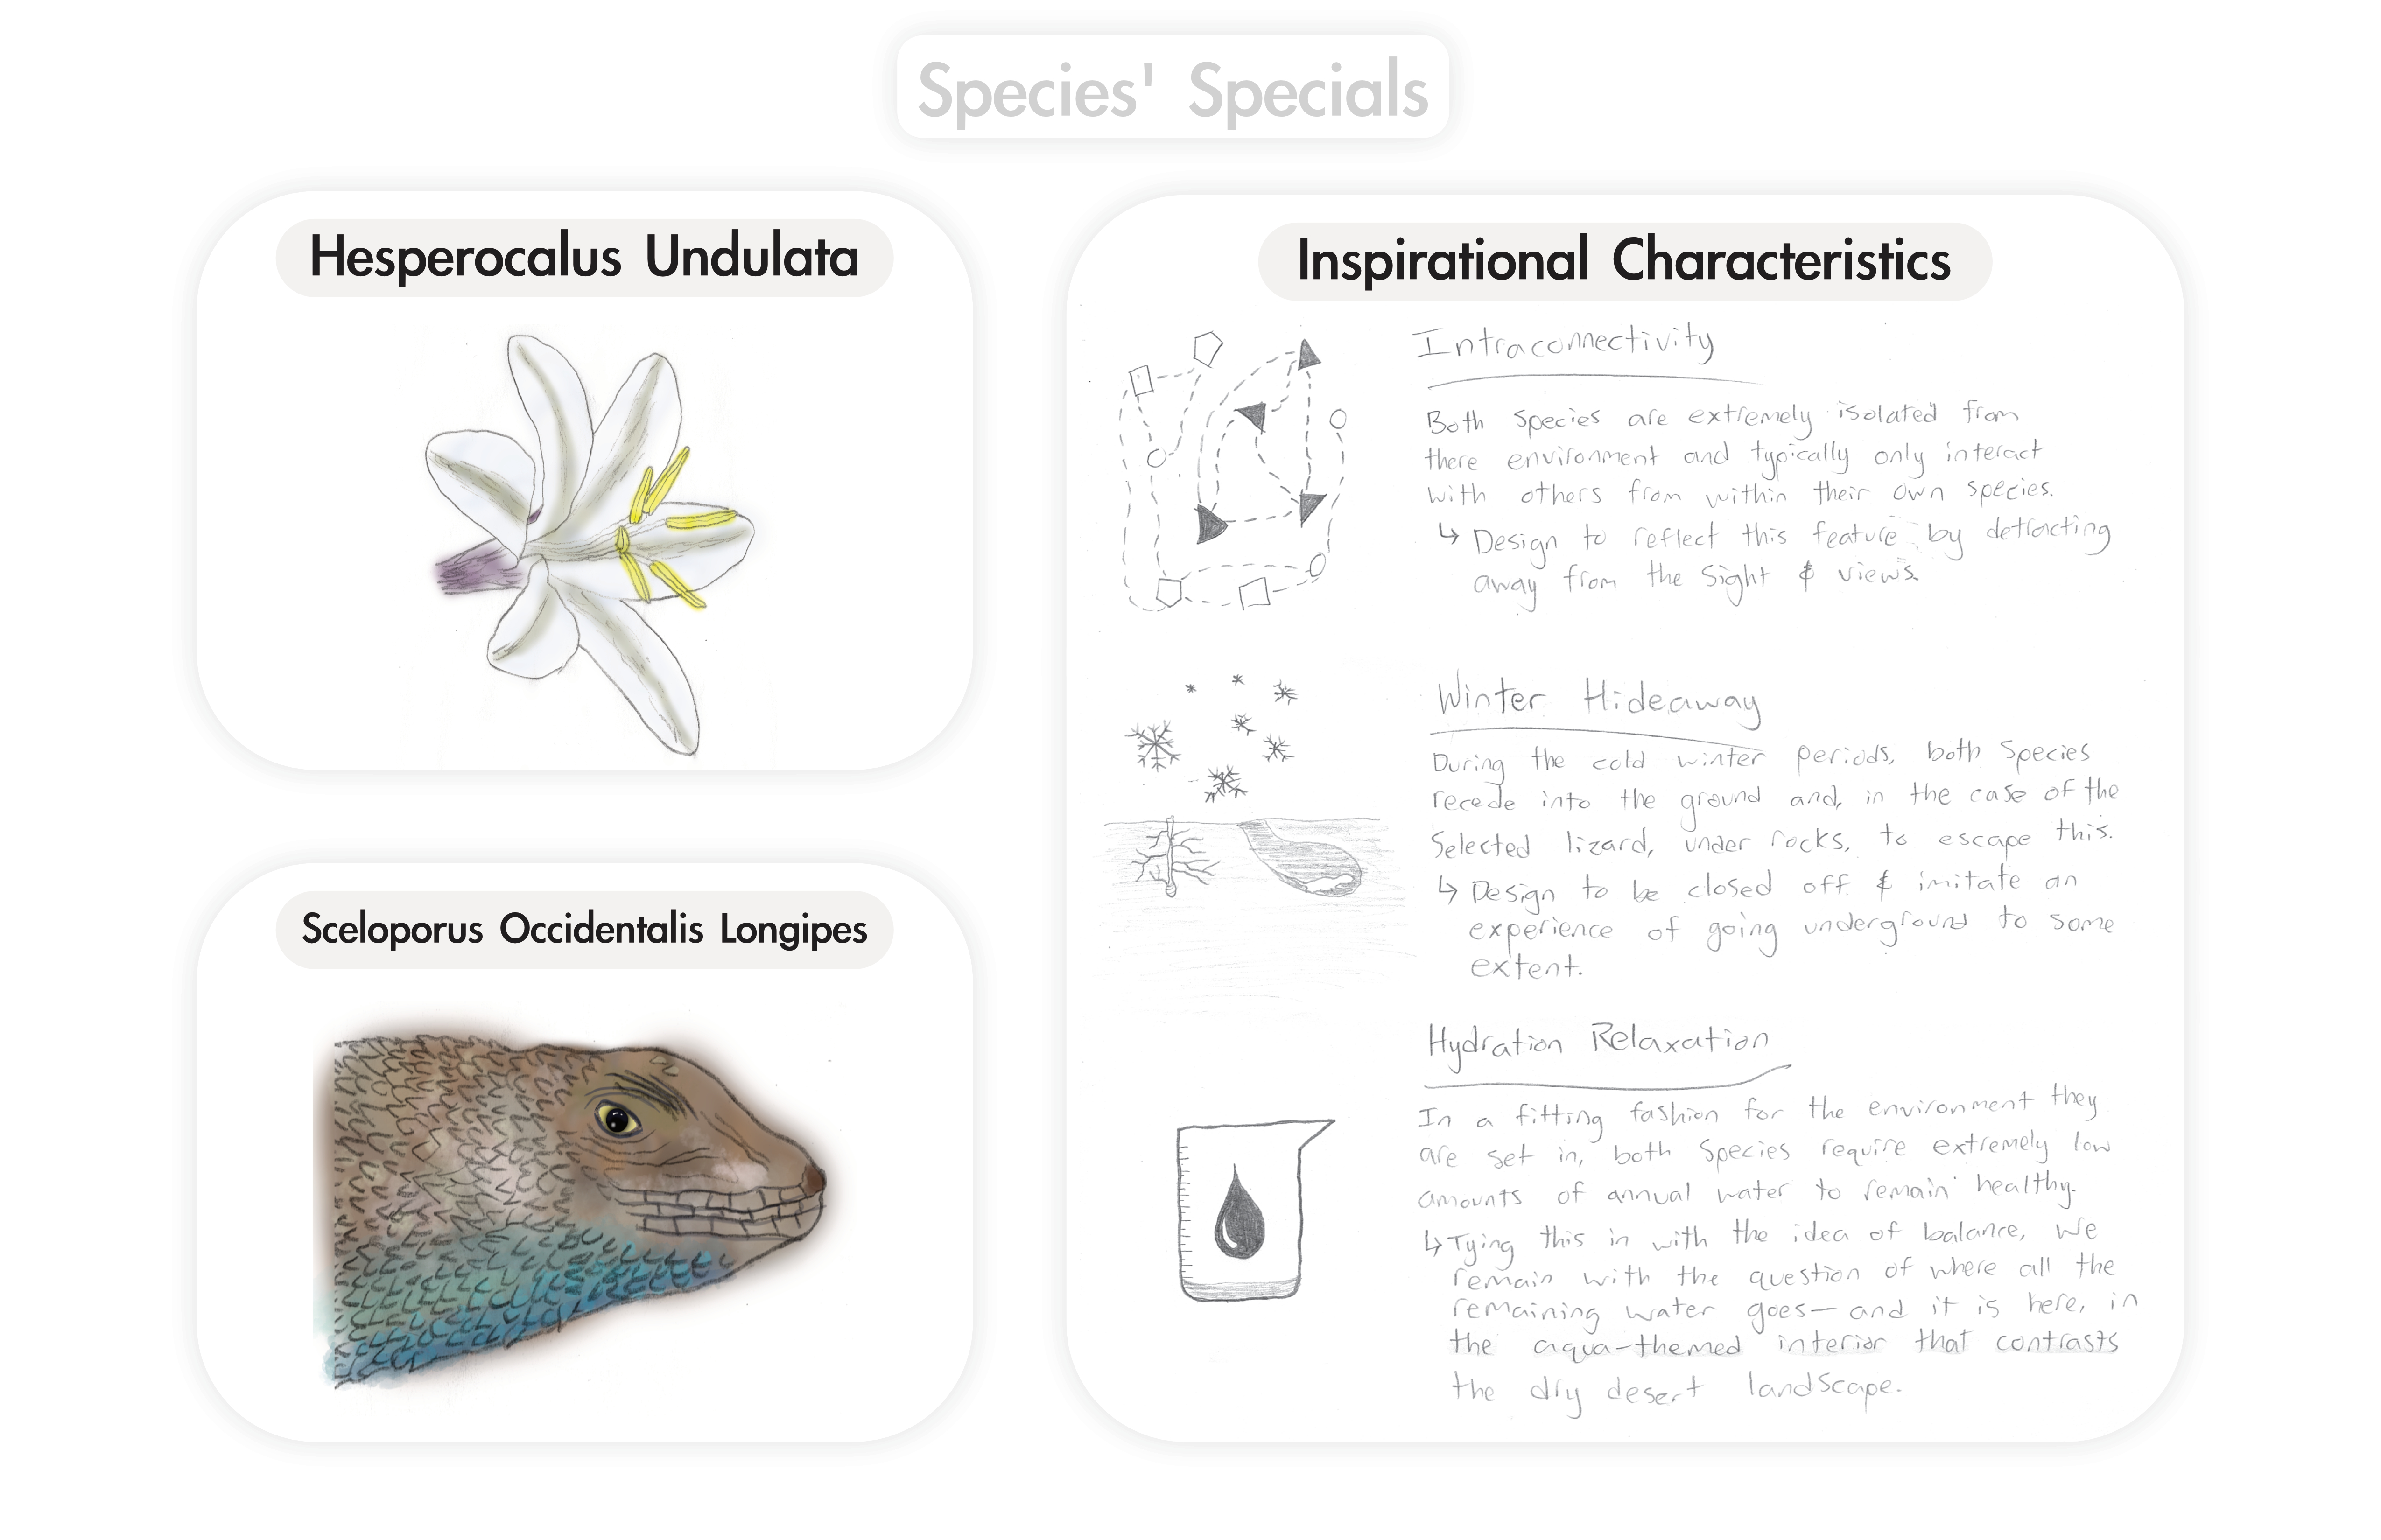 Species' Specials
Hesperocalus Undulata
Sceloporus Occidentalis Longipes
Inspirational Characteristics
Intraconnectivity
Both species are extremely isolated from
there environment and typically only interact
with others from within their own species.
↳ Design to reflect this feature by detracting
away from the sight & views.
Winter Hideaway
During the cold winter periods, both species
recede into the ground and, in the case of the
selected lizard, under rocks, to escape this.
↳ Design to be closed off & imitate an
experience of going underground to some
extent.
Hydration Relaxation
In a fitting fashion for the environment they
are set in, both species require extremely low
amounts of annual water to remain healthy.
↳ Tying this in with the idea of balance, we
remain with the question of where all the
remaining water goes— and it is here, in
the aqua-themed interior that contrasts
the dry desert landscape.